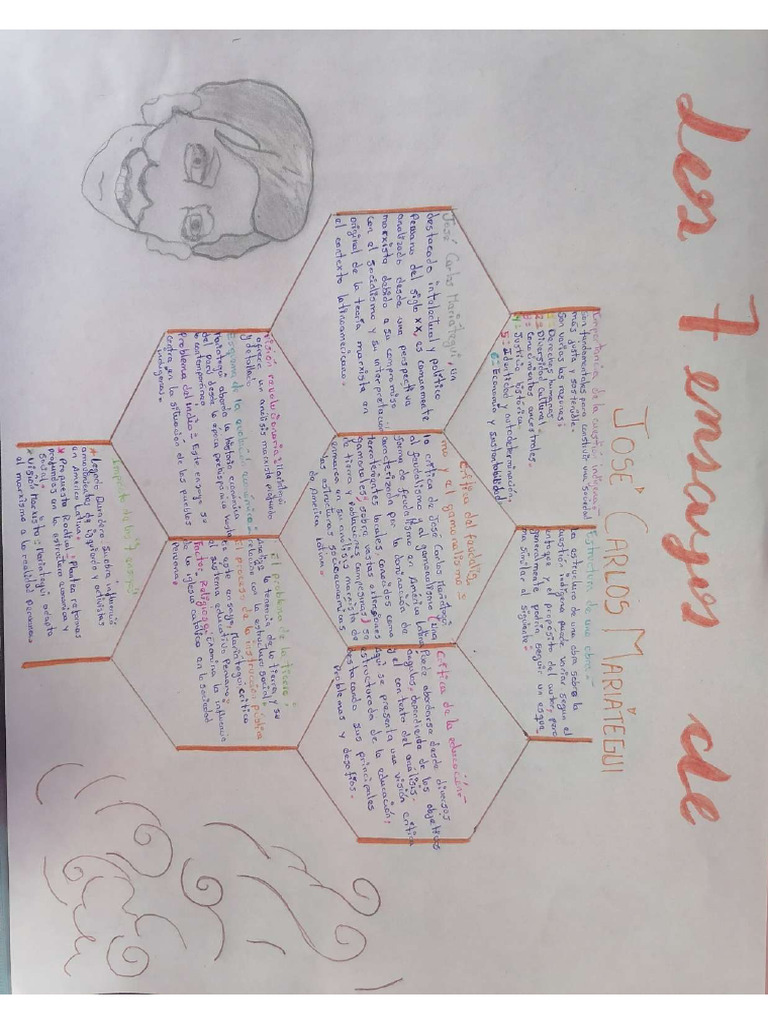 Los 7 ensayos de
JOSÉ CARLOS MARIÁTEGUI
Importancia de la cuestión indígena=
son fundamentales para construir una sociedad
más justa y sostenible.
Son varias las razones:
1: Derechos humanos
2: Diversidad cultural.
3: Conocimientos ancestrales.
4: Justicia histórica.
5: Identidad y autodeterminación.
6: Economía y sustentabilidad
Estructura de una obra=
La estructura de una obra sobre la
cuestión indígena puede variar según el
enfoque y el propósito del autor, pero
generalmente podría seguir un esque
ma similar al siguiente:
José Carlos Mariátegui, un
destacado intelectual y político
Peruano del siglo XX, es comunmente
analizado desde una perspectiva
marxista debido a su compromiso
con el socialismo y su interpretación
original de la teoría marxista en
el contexto latinoamericano.
Crítica del feudalis
mo y el gamonalismo:
la crítica de José Carlos Mariátegui
al feudalismo y al gamonalismo (una
forma de feudalismo en América Latina
caracterizada por la dominación de
terratenientes locales, conocidos como
gamonales, sobre vastas extensiones
de tierra y poblaciones campesinas) se
en su análisis marxista de
las estructuras socioeconómicas
de América Latina.
Crítica de la educación=
Puede abordarse desde diversos
ángulos, dependiendo de los objetivos
y el contexto del análisis.
Aquí se presenta una visión crítica
estructurada de la educación,
destacando sus principales
problemas y desafíos.
Visión revolucionaria: Mariátegui
ofrece un análisis marxista profundo
y detallado
Esquema de la evolución económica:
Mariátegui aborda la historia económica
del perú desde la época prehispánica hasta
lo contemporáneo
Problema del indio: Este ensayo se
centra en la situación de los pueblos
indígenas.
El problema de la tierra:
Analiza la tenencia de la tierra y su
relación con la estructura social
El proceso de la instrucción pública
en este ensayo, Mariátegui critica
el sistema educativo Peruano.
Factor Religioso: Examina la influencia
de la iglesia católica en la sociedad
Peruana.
Impacto de los 7 ensayos
★ Legado Duradero: Su obra influenció
movimientos de izquierda y activistas
en América Latina.
★ Propuesta Radical: Plantea reformas
profundas en la estructura económica y
social.
★ Visión Marxista: Mariátegui adapta
el marxismo a la realidad Peruana.